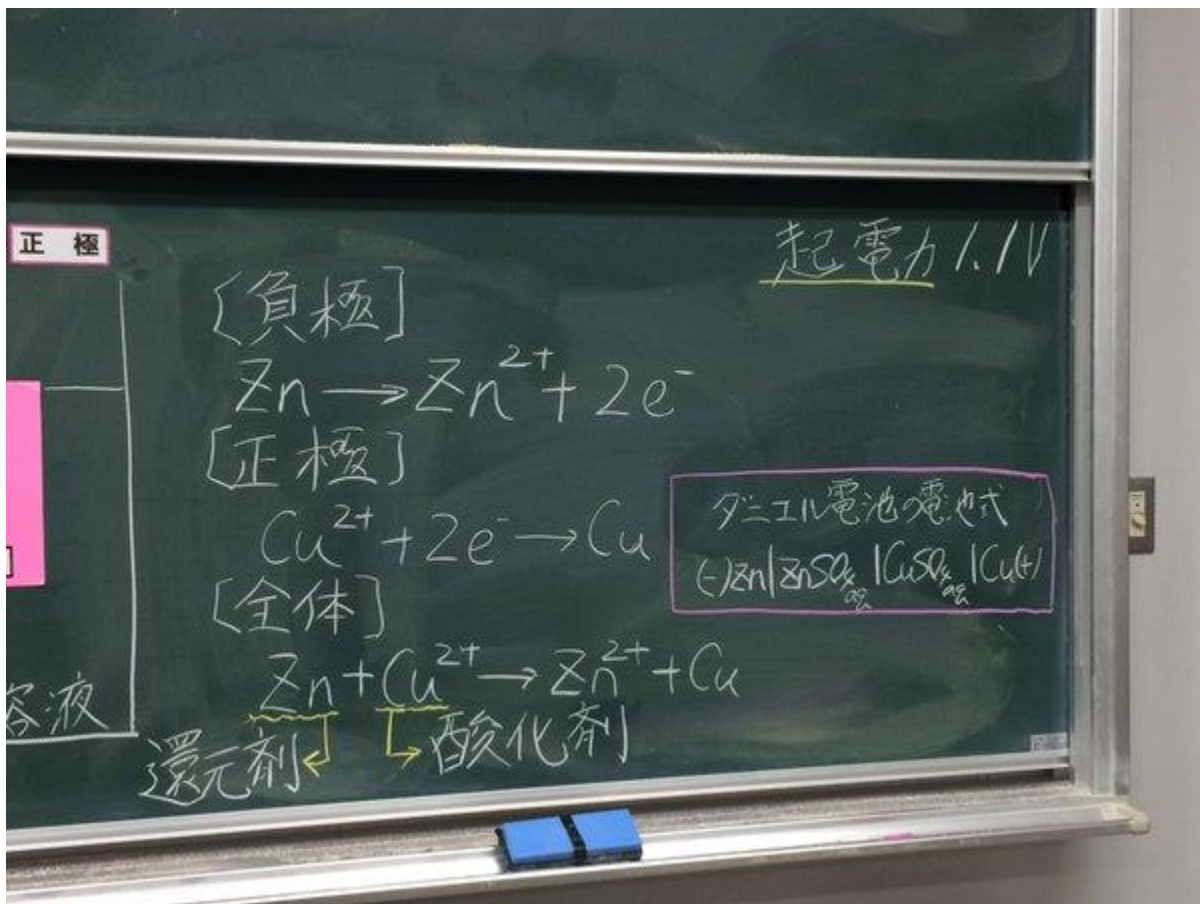 正極
起電力 1.1V
[負極]
Zn → Zn²⁺ + 2e⁻
[正極]
Cu²⁺ + 2e⁻ → Cu
[全体]
Zn + Cu²⁺ → Zn²⁺ + Cu
還元剤
酸化剤
ダニエル電池の電池式
(-)Zn|ZnSO₄aq|CuSO₄aq|Cu(+)
溶液